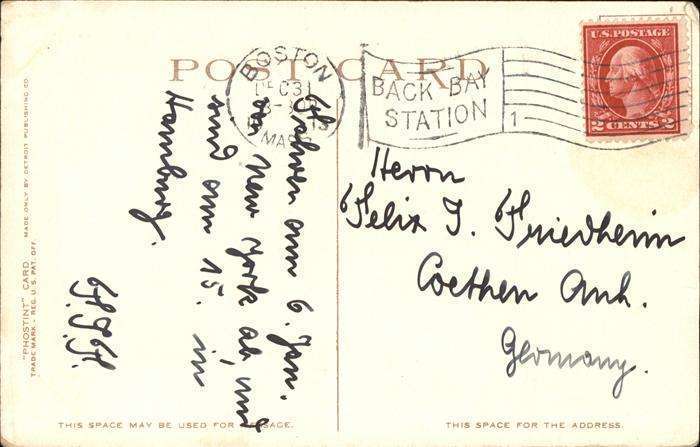 POST CARD
BOSTON
DEC 31
MASS.
BACK BAY
STATION
1
U.S. POSTAGE
2 CENTS 2
Fahren am 6. Jan.
von New York ab, und
sind am 15. in
Hamburg.
Herrn
Felix J. Friedheim
Coethen Anh.
Germany.
"PHOSTINT" CARD
TRADE MARK - REG. U.S. PAT. OFF.
MADE ONLY BY DETROIT PUBLISHING CO.
THIS SPACE MAY BE USED FOR MESSAGE.
THIS SPACE FOR THE ADDRESS.